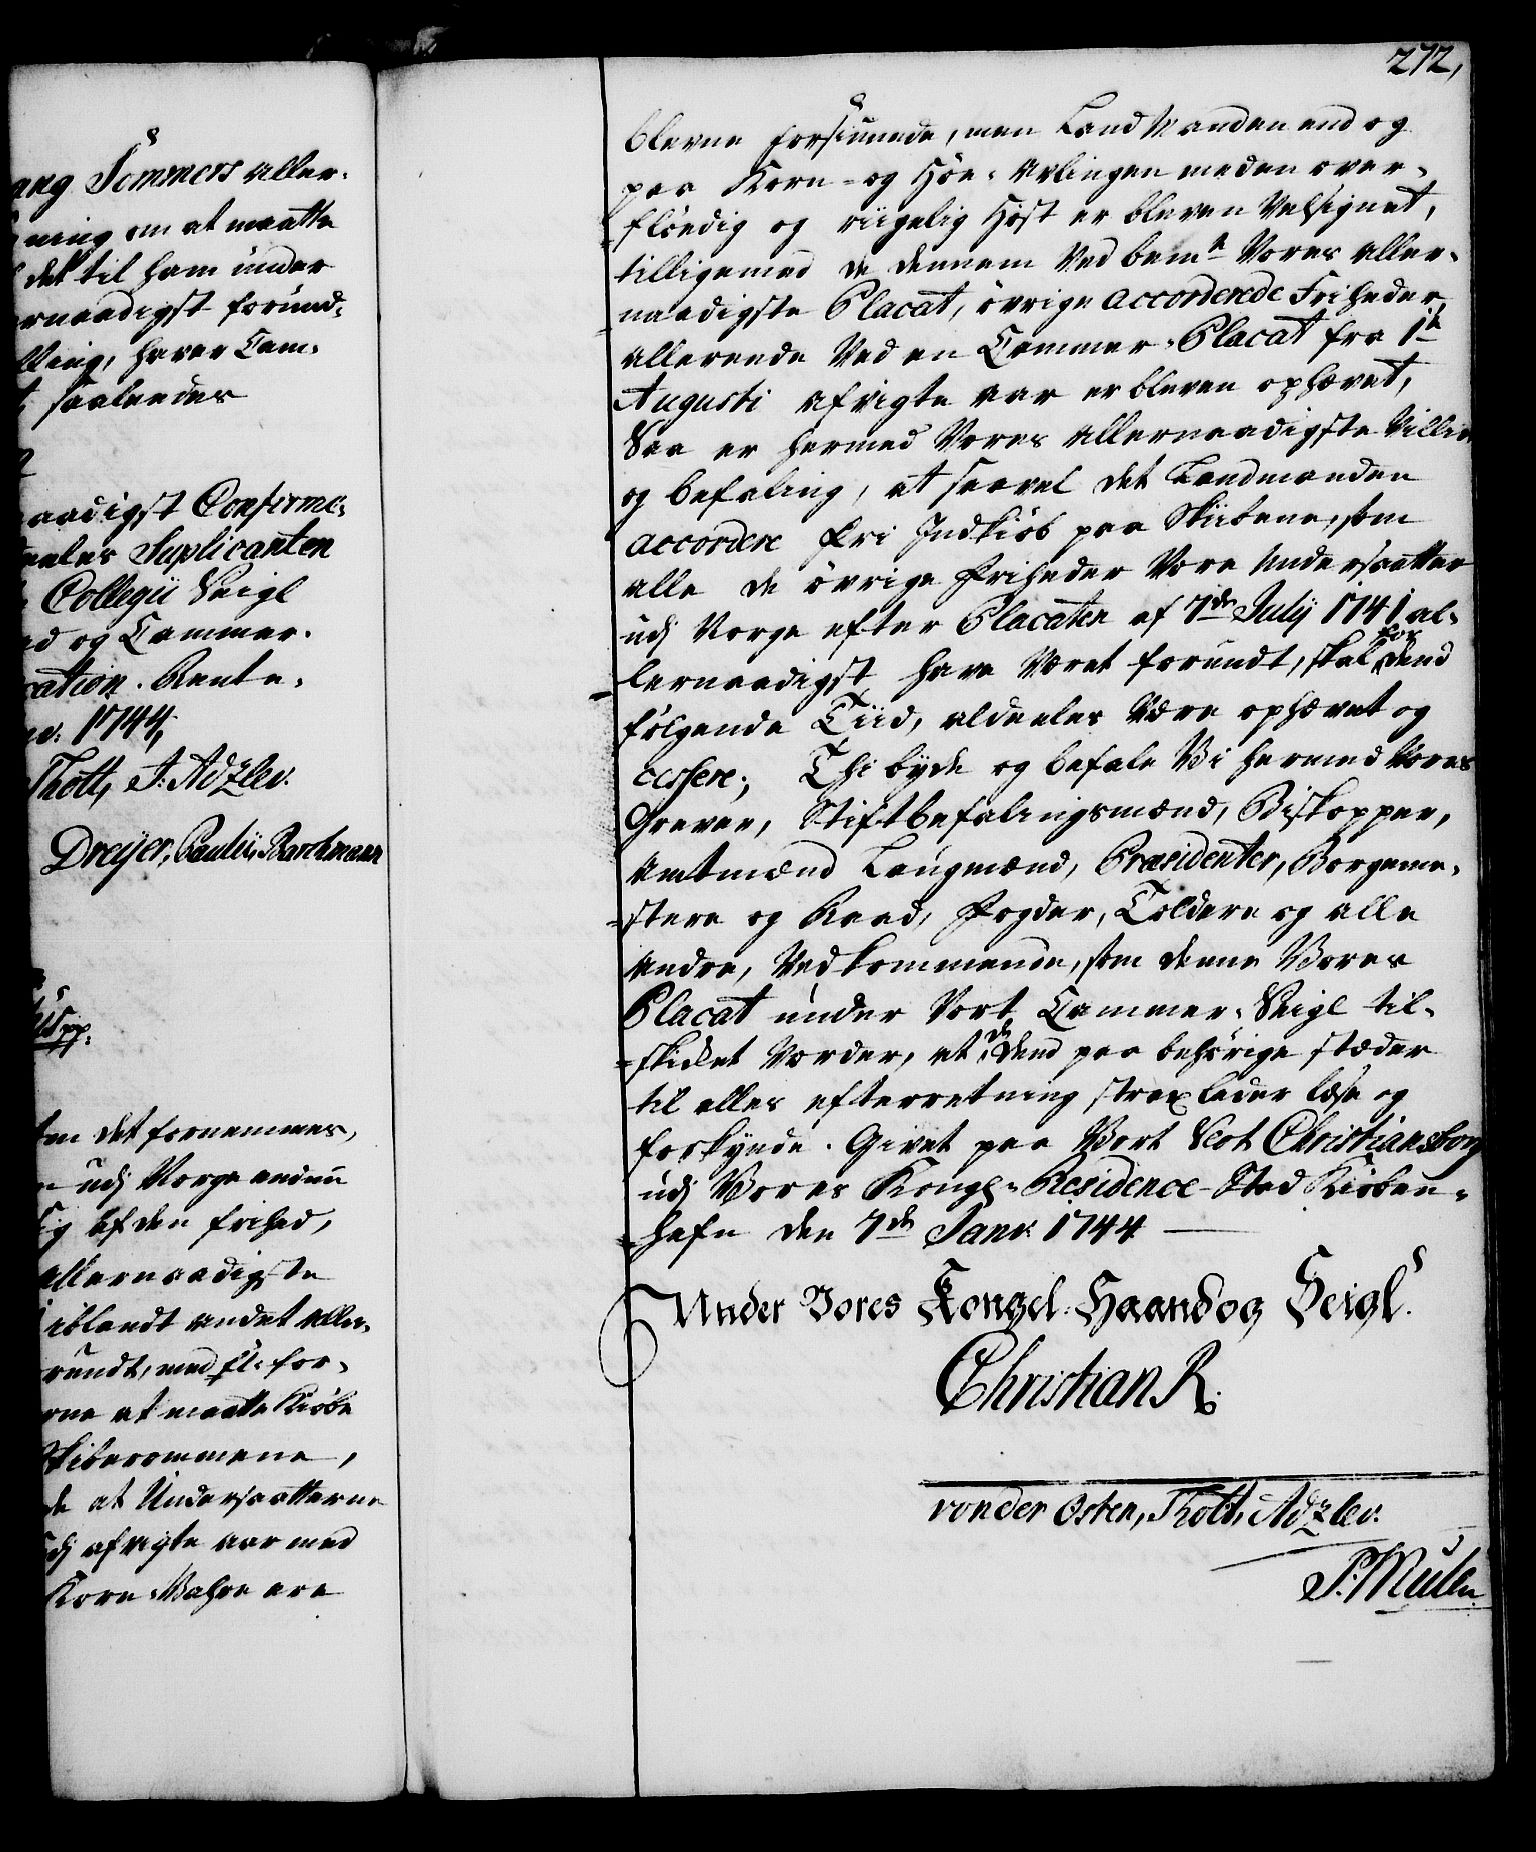 272,
ang Sommers aller-
ning om at maatte
det til ham under
ernaadigst forund-
lling, haver Cam-
saaledes
aadigst Confirme-
eeles Suplicanten
Collegii Seigl
ed og Cammer-
cation. Rente-
1744,
Thott, J. Adzlev.
Dreyer, Pauli, Barchmann
pp.
det fornemmes,
udj Norge endnu
sig af den frihed,
allernaadigste
iblandt andet aller-
rundt, med fl: for-
erne at maatte Kiøbe
Skiberommene,
de at Undersaatterne
udj afvigte aar med
Korn-Vahre ere
blevne forsiunede, men Land Manden end og
paa Korn- og Høe-Avlingen meden over-
flöedig og riigelig Höst er bleven Velsignet,
tilligemed de dennem Ved bemte Vores aller-
naadigste Placat, övrige accorderede Friheder
allereede Ved en Cammer-Placat fra 1te
Augusti afvigte aar er bleven ophævet,
Saa er hermed Vores allernaadigste Villie
og befaling, at saavel det Landmanden
accordere fri Indkiøb paa Skibene, som
alle de övrige friheder Vore Undersaatter
udj Norge efter Placaten af 7de July 1741 al-
lernaadigst have Været forundt, skal for dend
følgende Tiid, aldeeles Være ophævet og
cessere; Thi byde og befale Vi hermed Vores
Grever, Stiftbefalingsmænd, Biskopper,
Amtmænd Laugmænd, Præsidenter, Borgeme-
stere og Raad, Fogder, Toldere og alle
andre, Vedkommende, som denne Vores
Placat under Vort Cammer-Seigl til-
skicket Vorder, at de dend paa behörige stæder
til alles efterretning strax lader læse og
forkynde. Givet paa Vort Slot Christiansborg
udj Vores Kongl: Residence-Stad Kiöben-
hafn den 7de Janv: 1744
Under Vores Kongel: Haand og Seigl.
Christian R.
von der Osten, Thott, Adzlev.
P. Müller